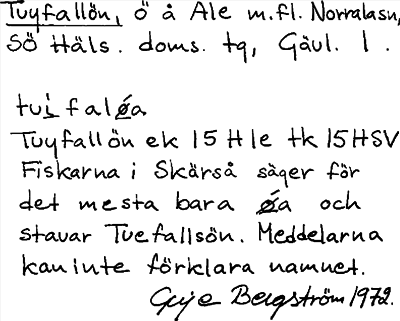 Tuyfallön, ö å Ale m.fl. Norralasn,
SÖ Häls. doms. tq, Gävl. l.
tuı̨ faløa
Tuyfallön ek 15 H le tk 15HSV
Fiskarna i Skärså säger för
det mesta bara øa och
stavar Tuefallsön. Meddelarna
kan inte förklara namnet.
Guje Bergström 1972.